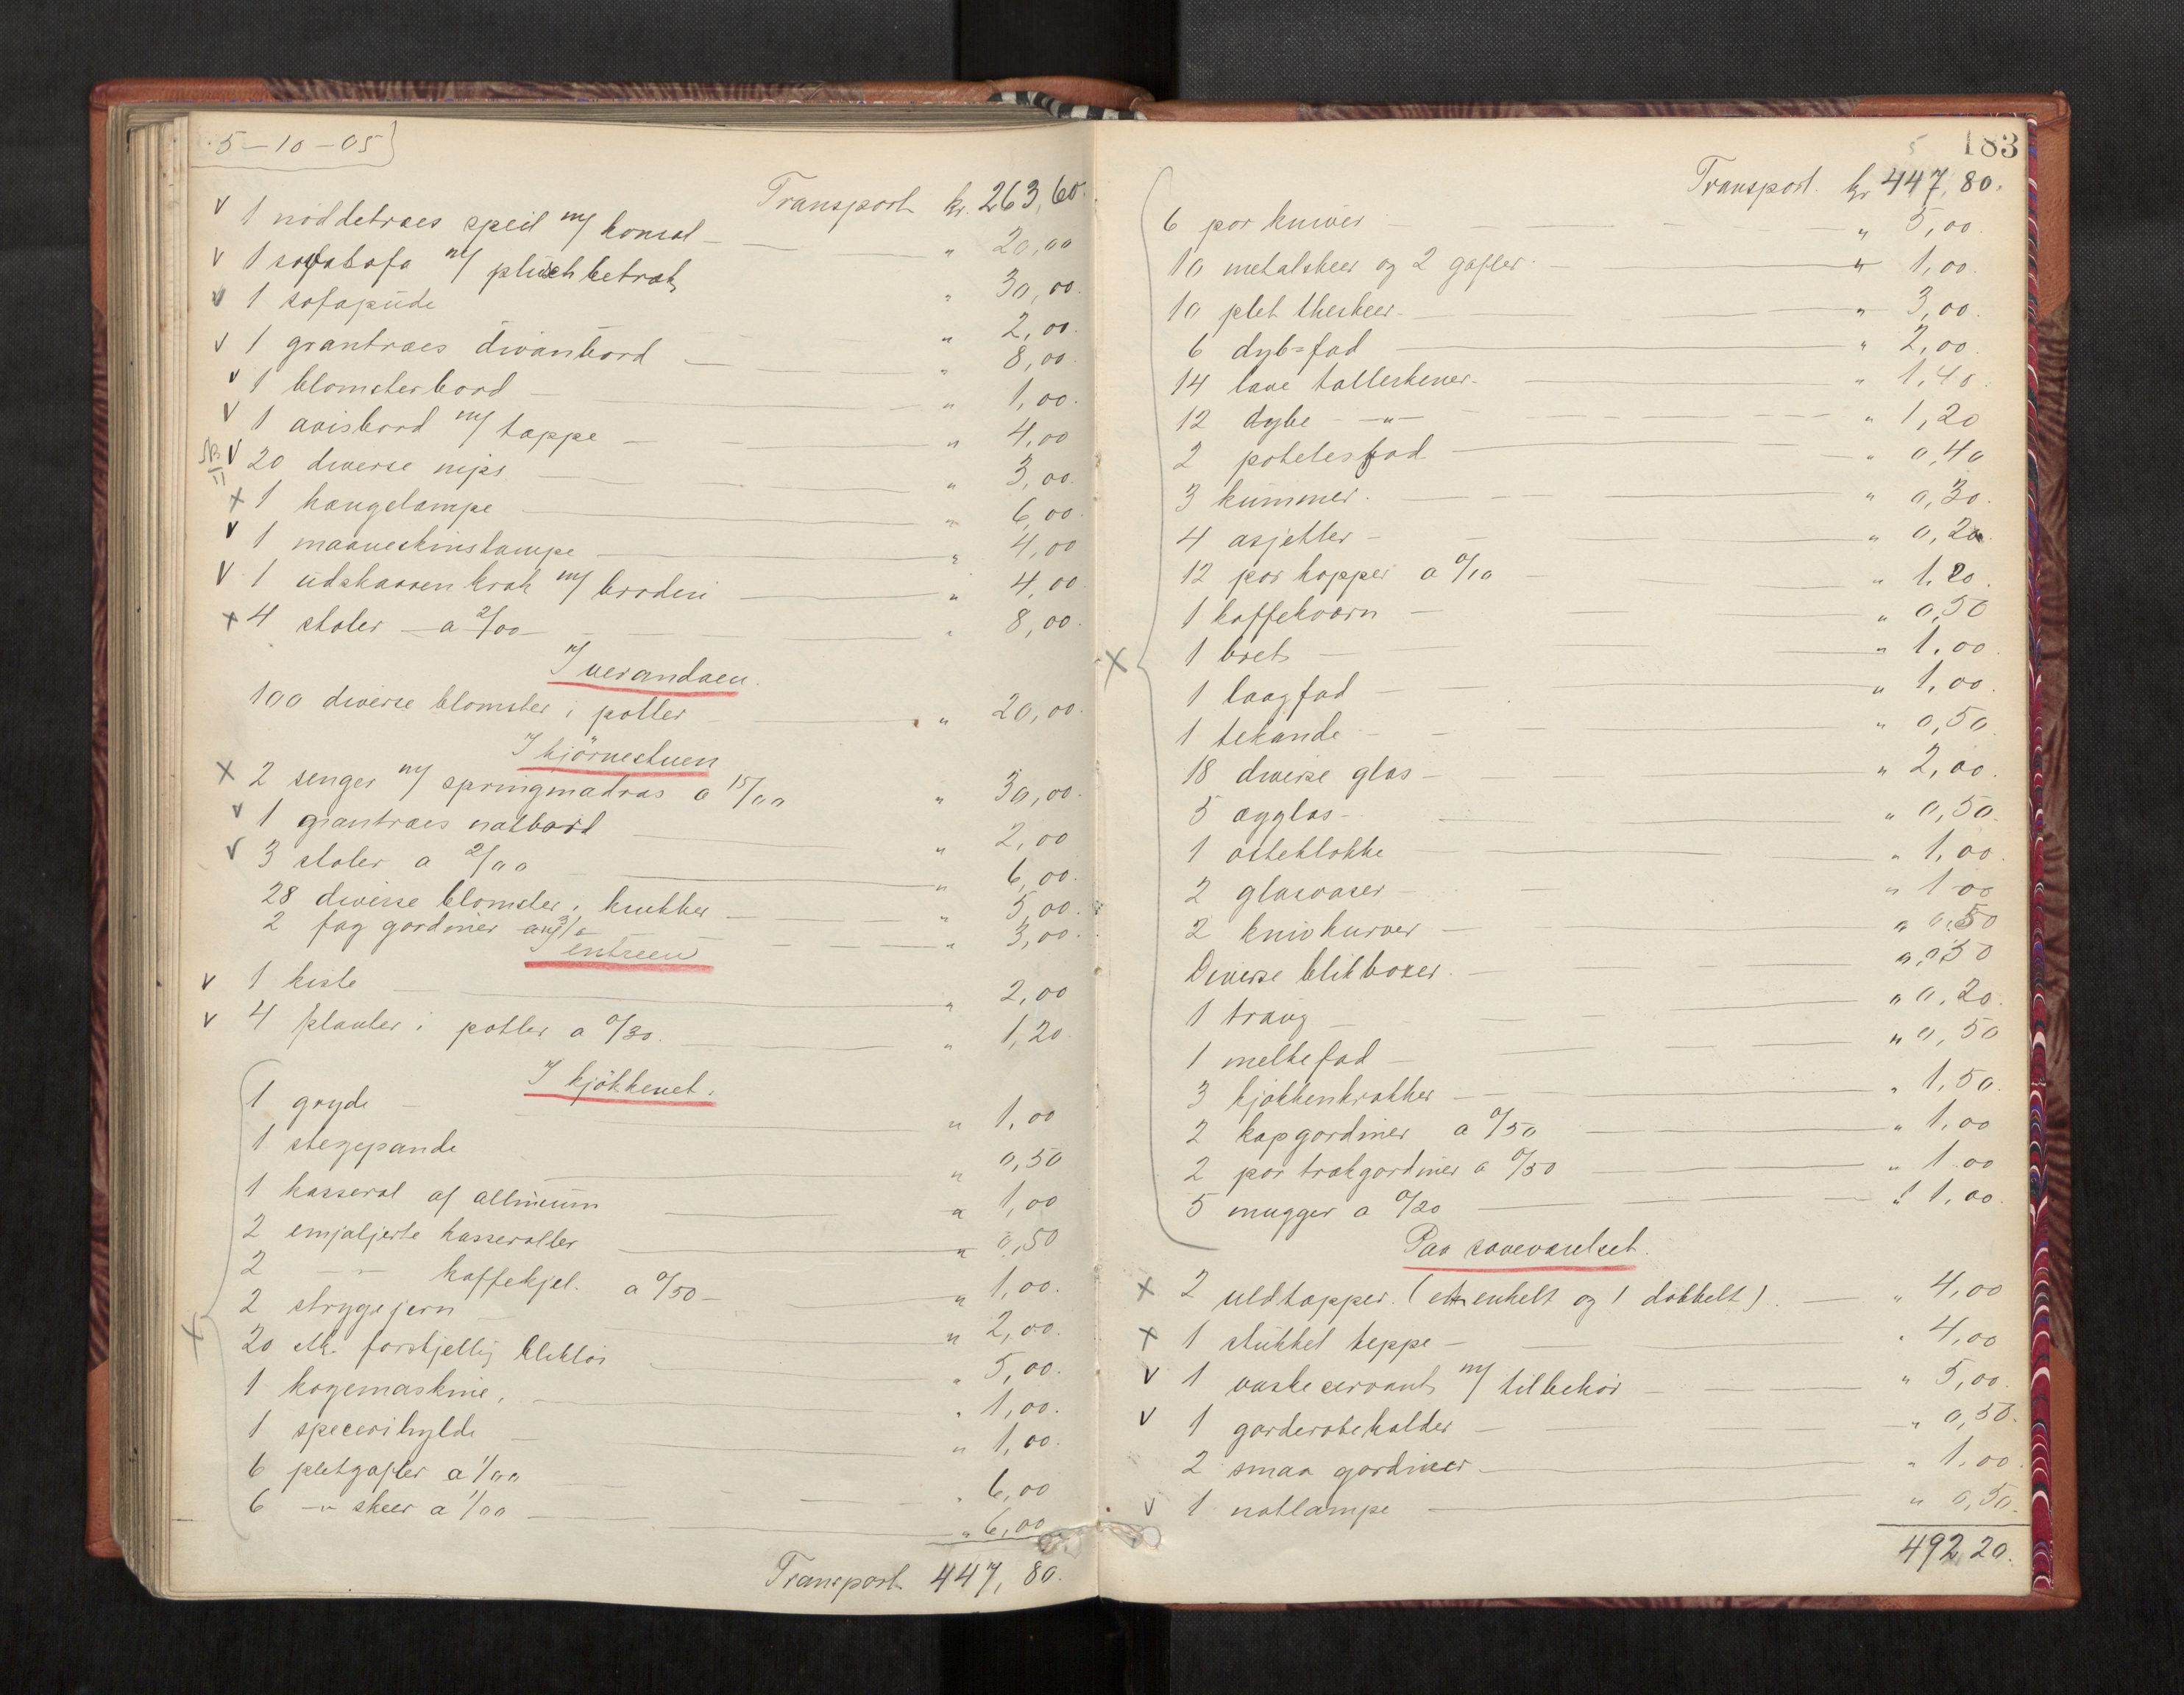 5-10-05
Transport kr. 263,60.
v 1 nöddetræs speil m/ konsol — " 20,00
v 1 sovesofa m/ plüschbetræk " 30,00.
v 1 sofapüde " 2,00.
v 1 grantræes divanbord — " 8,00.
v 1 blomsterbord — " 1,00.
v 1 avisbord m/ tæppe — " 4,00
v 20 diverse nips — " 3,00.
x 1 hængelampe — " 6,00
v 1 maaneskinslampe — " 4,00
v 1 udskaaren krak m/ broderi — " 4,00
x 4 stoler — a 2/00 — " 8,00.
I verandaen.
100 diverse blomster i potter — " 20,00.
I hjörnestuen
x 2 senger m/ springmadras a 15/00 " 30,00.
v 1 grantræes natbord — " 2,00
v 3 stoler a 2/00 — " 6,00.
28 diverse blomster i krukker — " 5,00.
2 fag gardiner — " 3,00.
I entreen
v 1 kiste — " 2,00
v 4 planter i potter a 0/30. — " 1,20
I kjökkenet.
1 gryde — " 1,00
1 stegepande — " 0,50
1 kasserol af allmium — " 1,00
2 emjaljerte kasseroller — " 0,50
2 — " — kaffekjel. a 0/50 — " 1,00.
2 strygejern — " 2,00.
x 20 stk. forskjellig bliktöi — " 5,00.
1 kogemaskine. — " 1,00.
1 specerihylde — " 1,00.
6 pletgafler a 1/00 — " 6,00
6 -"- skeer a 1/00 — " 6,00
Transport 447,80.
183
5
Transport. kr 447,80.
6 par kniver — " 5,00.
10 metalskeer og 2 gafler — " 1,00.
10 plet theskeer — " 3,00.
6 dyb=fad — " 2,00.
14 lave tallerkener — " 1,40.
12 dybe -"- — " 1,20
2 potetesfad — " 0,40
3 kummer. — " 0,30.
4 asjetter — " 0,20.
12 par kopper a 0/10 — " 1.20.
1 kaffekværn — " 0,50
x 1 bret — " 1.00.
1 laagfad — " 1,00.
1 tekande — " 0,50
18 diverse glas — " 2,00.
5 ægglas — " 0,50.
1 osteklokke — " 1,00.
2 glasvaser — " 1-00
2 knivkurver — " 0,50
Diverse blikboxer. — " 0,50
1 traug — " 0,20.
1 meltefad — " 0,50
3 kjökkenkrakker — " 1,50.
2 kapgardiner a 0/50 — " 1,00
2 par trækgardiner a 0/50 — " 1.00
5 mugger a 0/20 — " 1,00.
Paa soveværelset.
x 2 uldtæpper. (et enkelt og 1 dobbelt). — " 4,00
x 1 stukket teppe — " 4,00
v 1 vaskeservant m/ tilbehör — " 5,00.
v 1 garderobeholder — " 0,50.
2 smaa gardiner — " 1.00.
v 1 natlampe — " 0,50.
492 20.